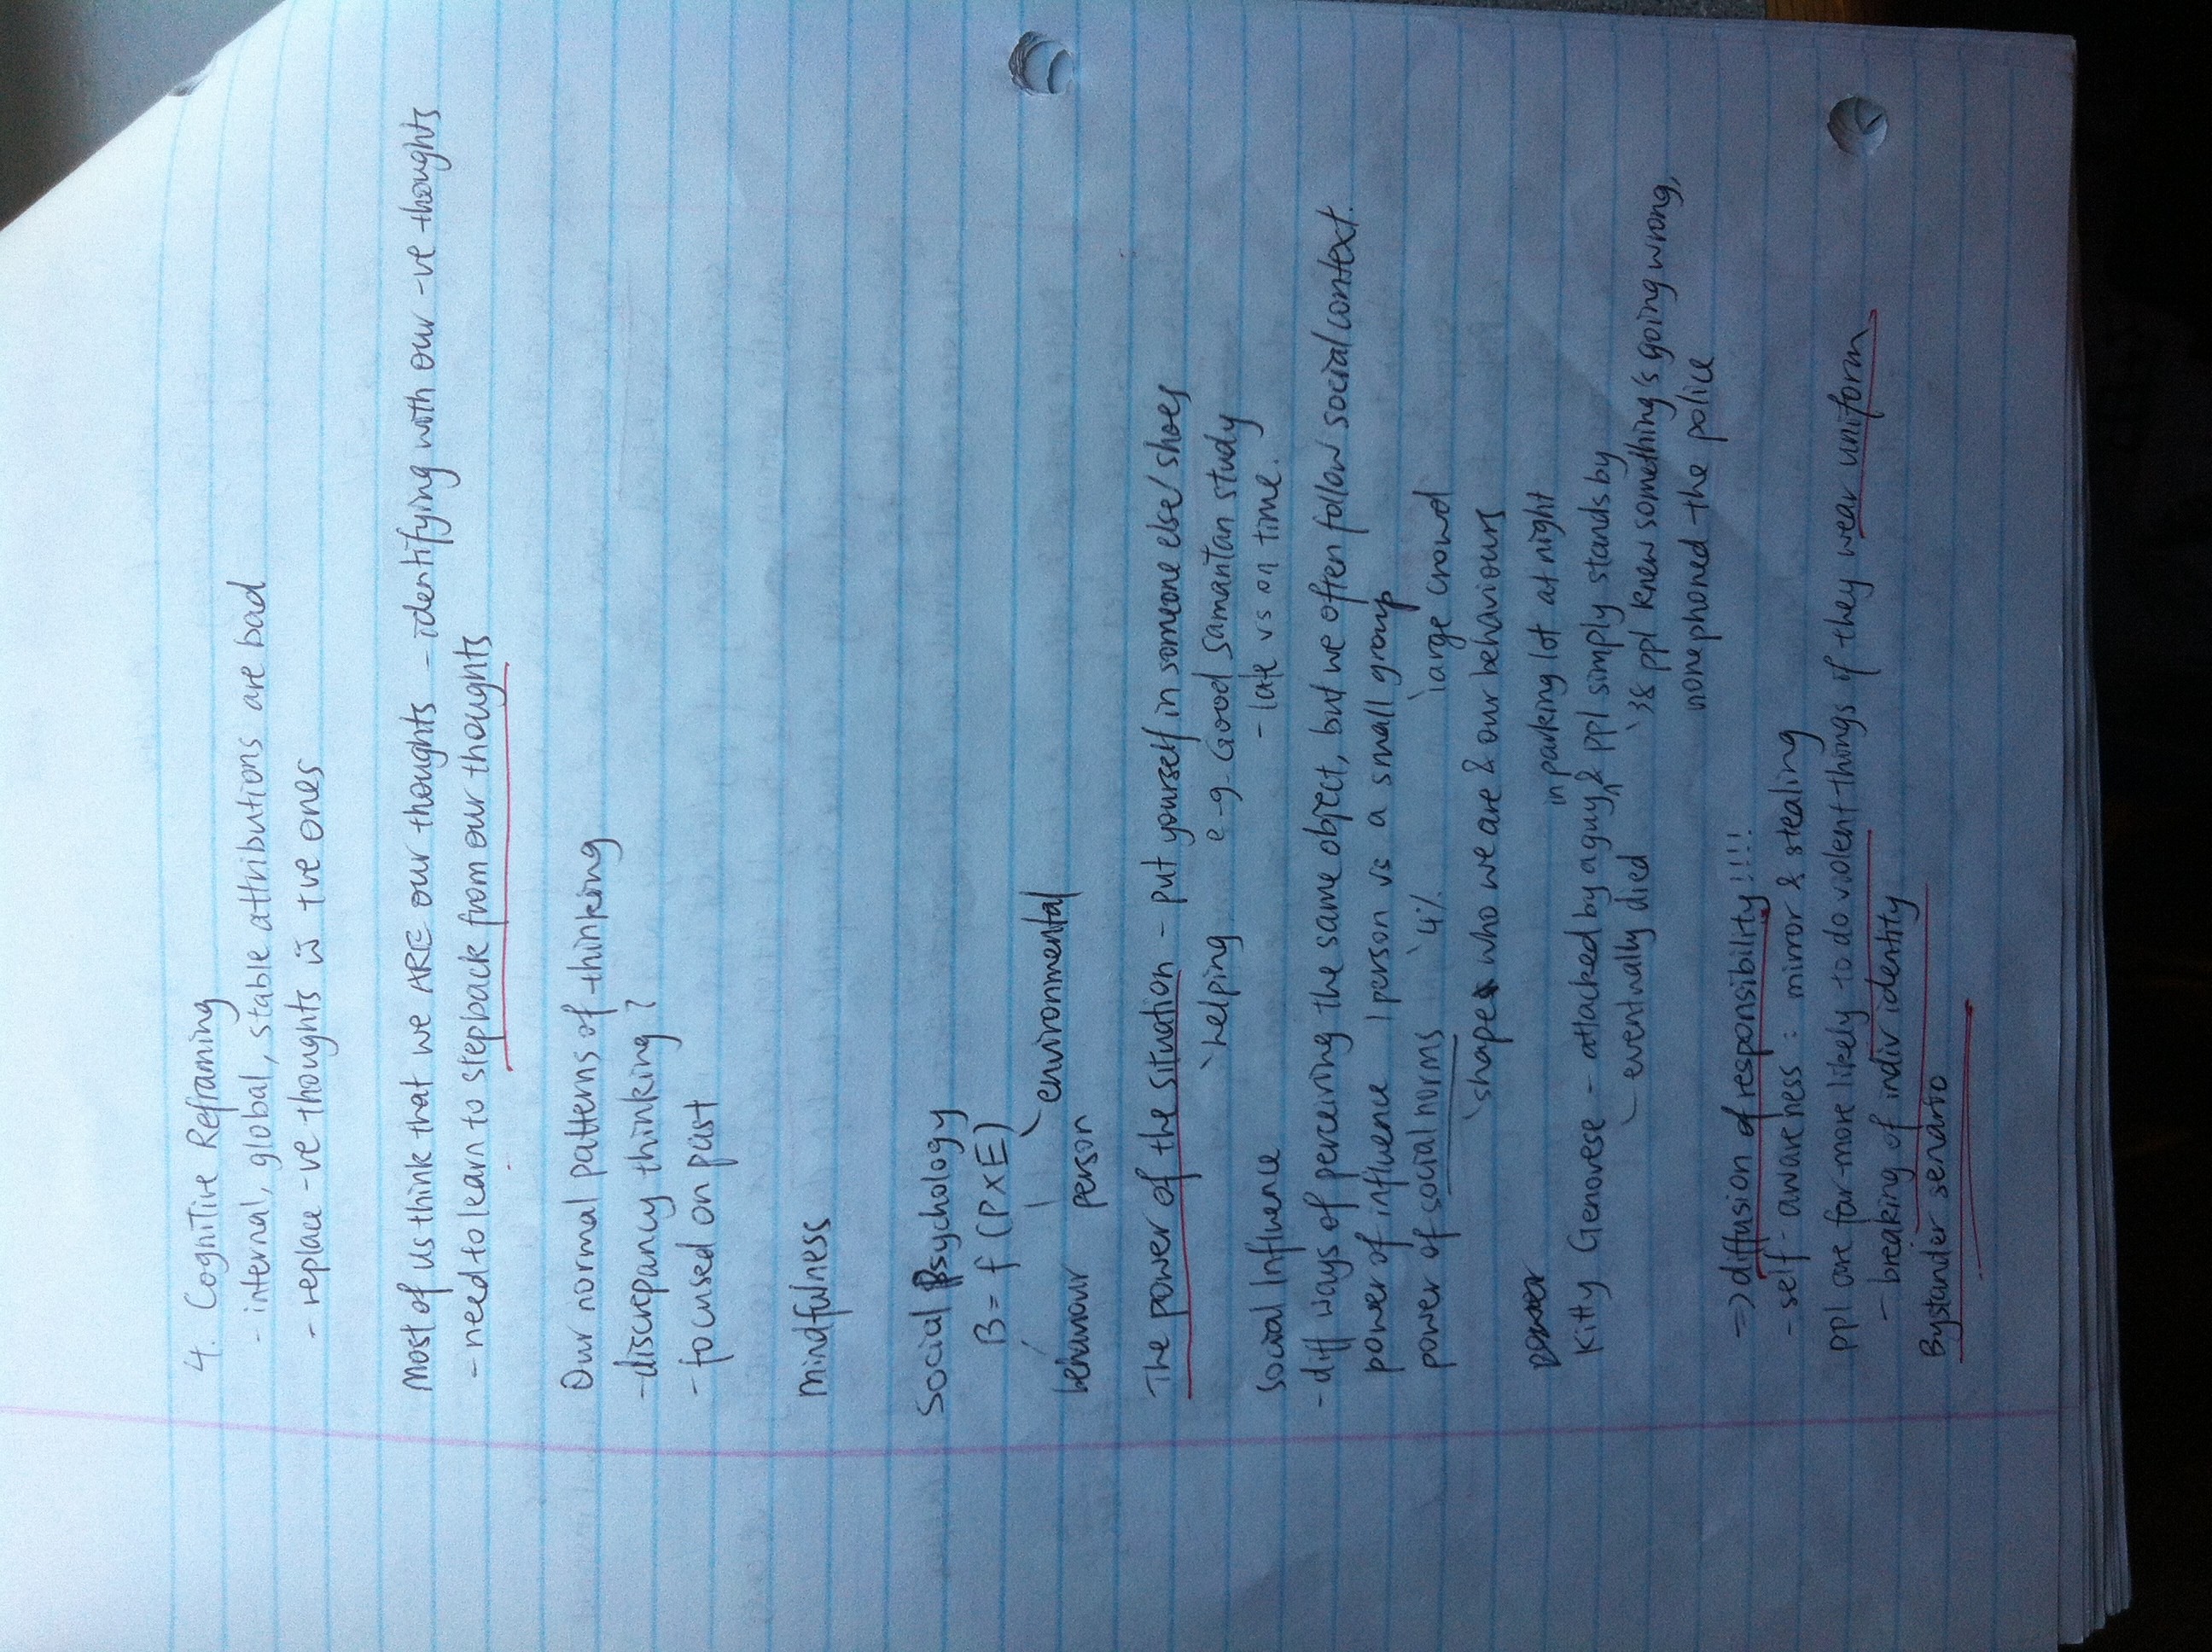 4. Cognitive Reframing
- internal, global, stable attributions are bad
- replace -ve thoughts w̄ +ve ones
Most of us think that we ARE our thoughts - identifying with our -ve thoughts
- need to learn to step back from our thoughts
Our normal patterns of thinking
- discrepancy thinking?
- focused on past
Mindfulness
Social Psychology
B = f (P x E)
environmental
behaviour person
The power of the situation - put yourself in someone else' shoes
helping e-g- Good Samaritan study
- late vs on time.
Social Influence
- diff ways of perceiving the same object, but we often follow social context.
power of influence 1 person vs a small group
power of social norms 4% large crowd
shapes who we are & our behaviours
in parking lot at night
Kitty Genovese - attacked by a guy & ppl simply stands by
- eventually died 38 ppl knew something's going wrong,
none phoned the police
=> diffusion of responsibility!!!!
- self-awareness : mirror & stealing
ppl are far-more likely to do violent things if they wear uniform
- breaking of indiv identity
Bystander senario